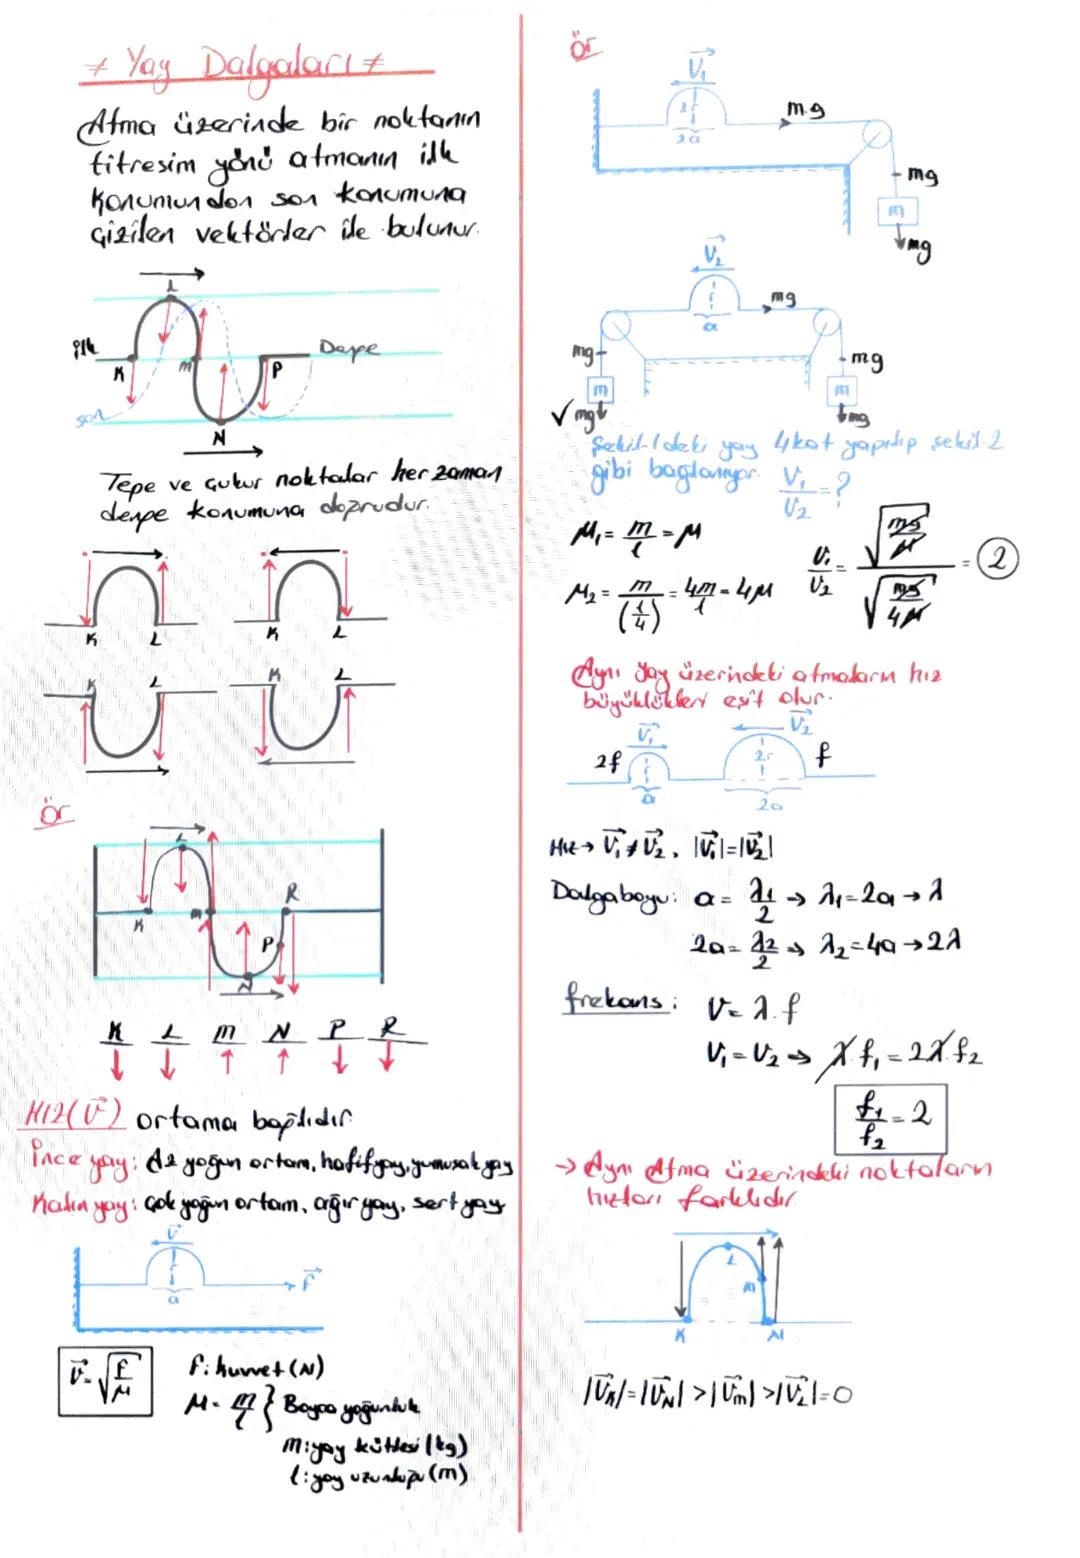 ≠ Yay Dalgaları ≠
Atma üzerinde bir noktanın
titresim yönü atmanın ilk
konumundan son konumuna
çizilen vektörler ile bulunur.
L
ilk
K
m
P
Denge
son
N
Tepe ve çukur noktalar her zaman
denge konumuna doğrudur.
K L
K L
K L
K L
ör
L
K
m
R
P
N
K L m N P R
↓ ↓ ↑ ↑ ↓ ↓
HIZ(V) ortama bağlıdır
İnce yay: Az yoğun ortam, hafif yay, yumusak yay
Kalın yay: Çok yoğun ortam, ağır yay, sert yay
V
r
a
F
V = √F/μ
F: kuvvet (N)
μ = m/l } Boyca yoğunluk
m: yay kütlesi (kg)
l: yay uzunluğu (m)
ör
V₁
2r
2a
m.g
mg
m
mg
V₂
r
a
mg
mg
mg
m
m
√ mg
mg
Şekil-1 deki yay 4 kat yapılıp şekil-2
gibi bağlanıyor. V₁/V₂ = ?
μ₁ = m/l = μ
μ₂ = m/(l/4) = 4m/l = 4μ
V₁/V₂ = √(mg/μ) / √(mg/4μ) = 2
Aynı yay üzerindeki atmaların hız
büyüklükleri eşit olur.
2f
V₁
r
a
V₂
2r
2a
f
Hız → V₁ ≠ V₂, |V₁|=|V₂|
Dalgaboyu: a = λ₁/2 → λ₁=2a → λ
2a = λ₂/2 → λ₂=4a → 2λ
frekans: V = λ.f
V₁ = V₂ → λ.f₁ = 2λ.f₂
f₁/f₂ = 2
→ Aynı Atma üzerindeki noktaların
hızları farklıdır
L
m
K
N
|VK|=|VN|>|Vm|>|VL|=0